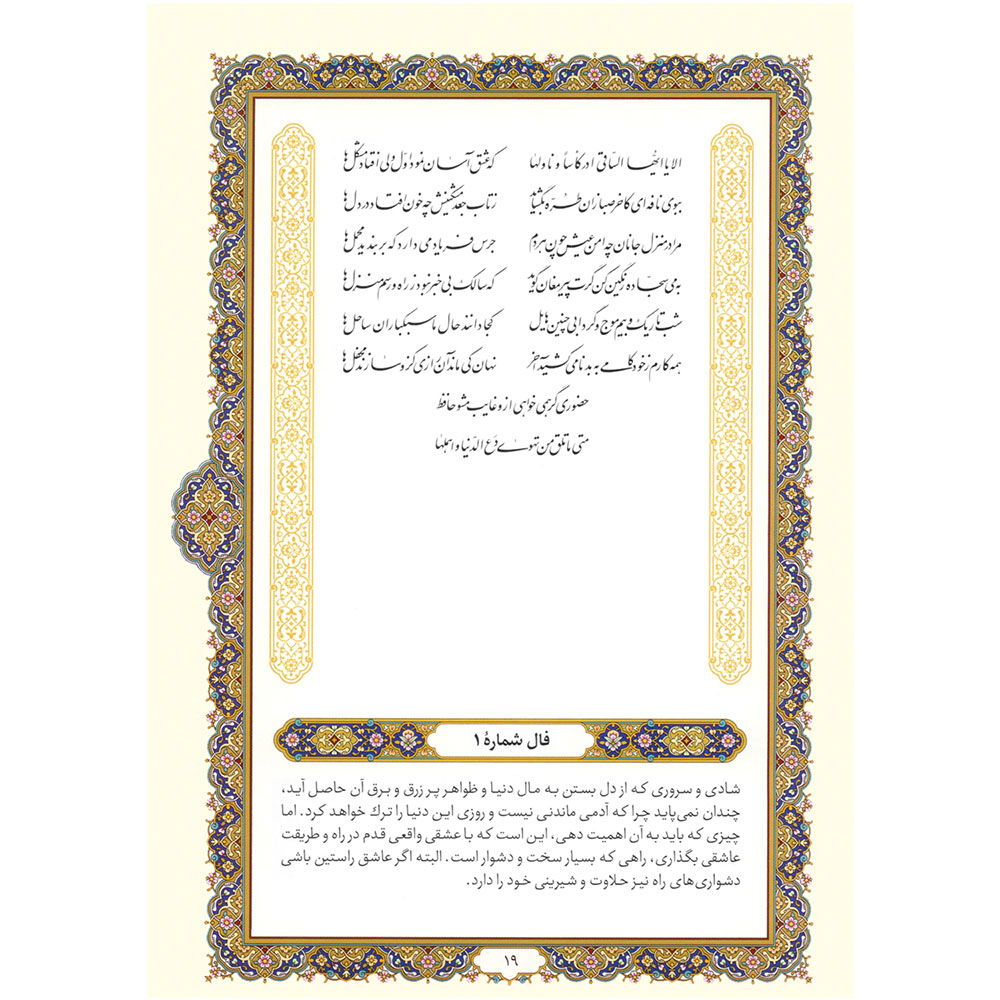 الا یا ایها الساقی ادر کاسا و ناولها که عشق آسان نمود اول ولی افتاد مشکل‌ها
ببوی نافه‌ای کاخر صبا زان طره بگشاید ز تاب جعد مشکینش چه خون افتاد در دل‌ها
مرا در منزل جانان چه امن عیش چون هر دم جرس فریاد می دارد که بربندید محمل‌ها
به می سجاده رنگین کن گرت پیر مغان گوید که سالک بی خبر نبود ز راه و رسم منزل‌ها
شب تاریک و بیم موج و گردابی چنین هایل کجا دانند حال ما سبکباران ساحل‌ها
همه کارم ز خود کامی به بدنامی کشید آخر نهان کی ماند آن رازی کزو سازند محفل‌ها
حضوری گر همی خواهی ازو غایب مشو حافظ
متی ما تلق من تهوی دع الدنیا و اهملها
فال شمارهٔ ۱
شادی و سروری که از دل بستن به مال دنیا و ظواهر پر زرق و برق آن حاصل آید،
چندان نمی‌پاید چرا که آدمی ماندنی نیست و روزی این دنیا را ترك خواهد کرد. اما
چیزی که باید به آن اهمیت دهی، این است که با عشقی واقعی قدم در راه و طریقت
عاشقی بگذاری، راهی که بسیار سخت و دشوار است. البته اگر عاشق راستین باشی
دشواری‌های راه نیز حلاوت و شیرینی خود را دارد.
۱۹